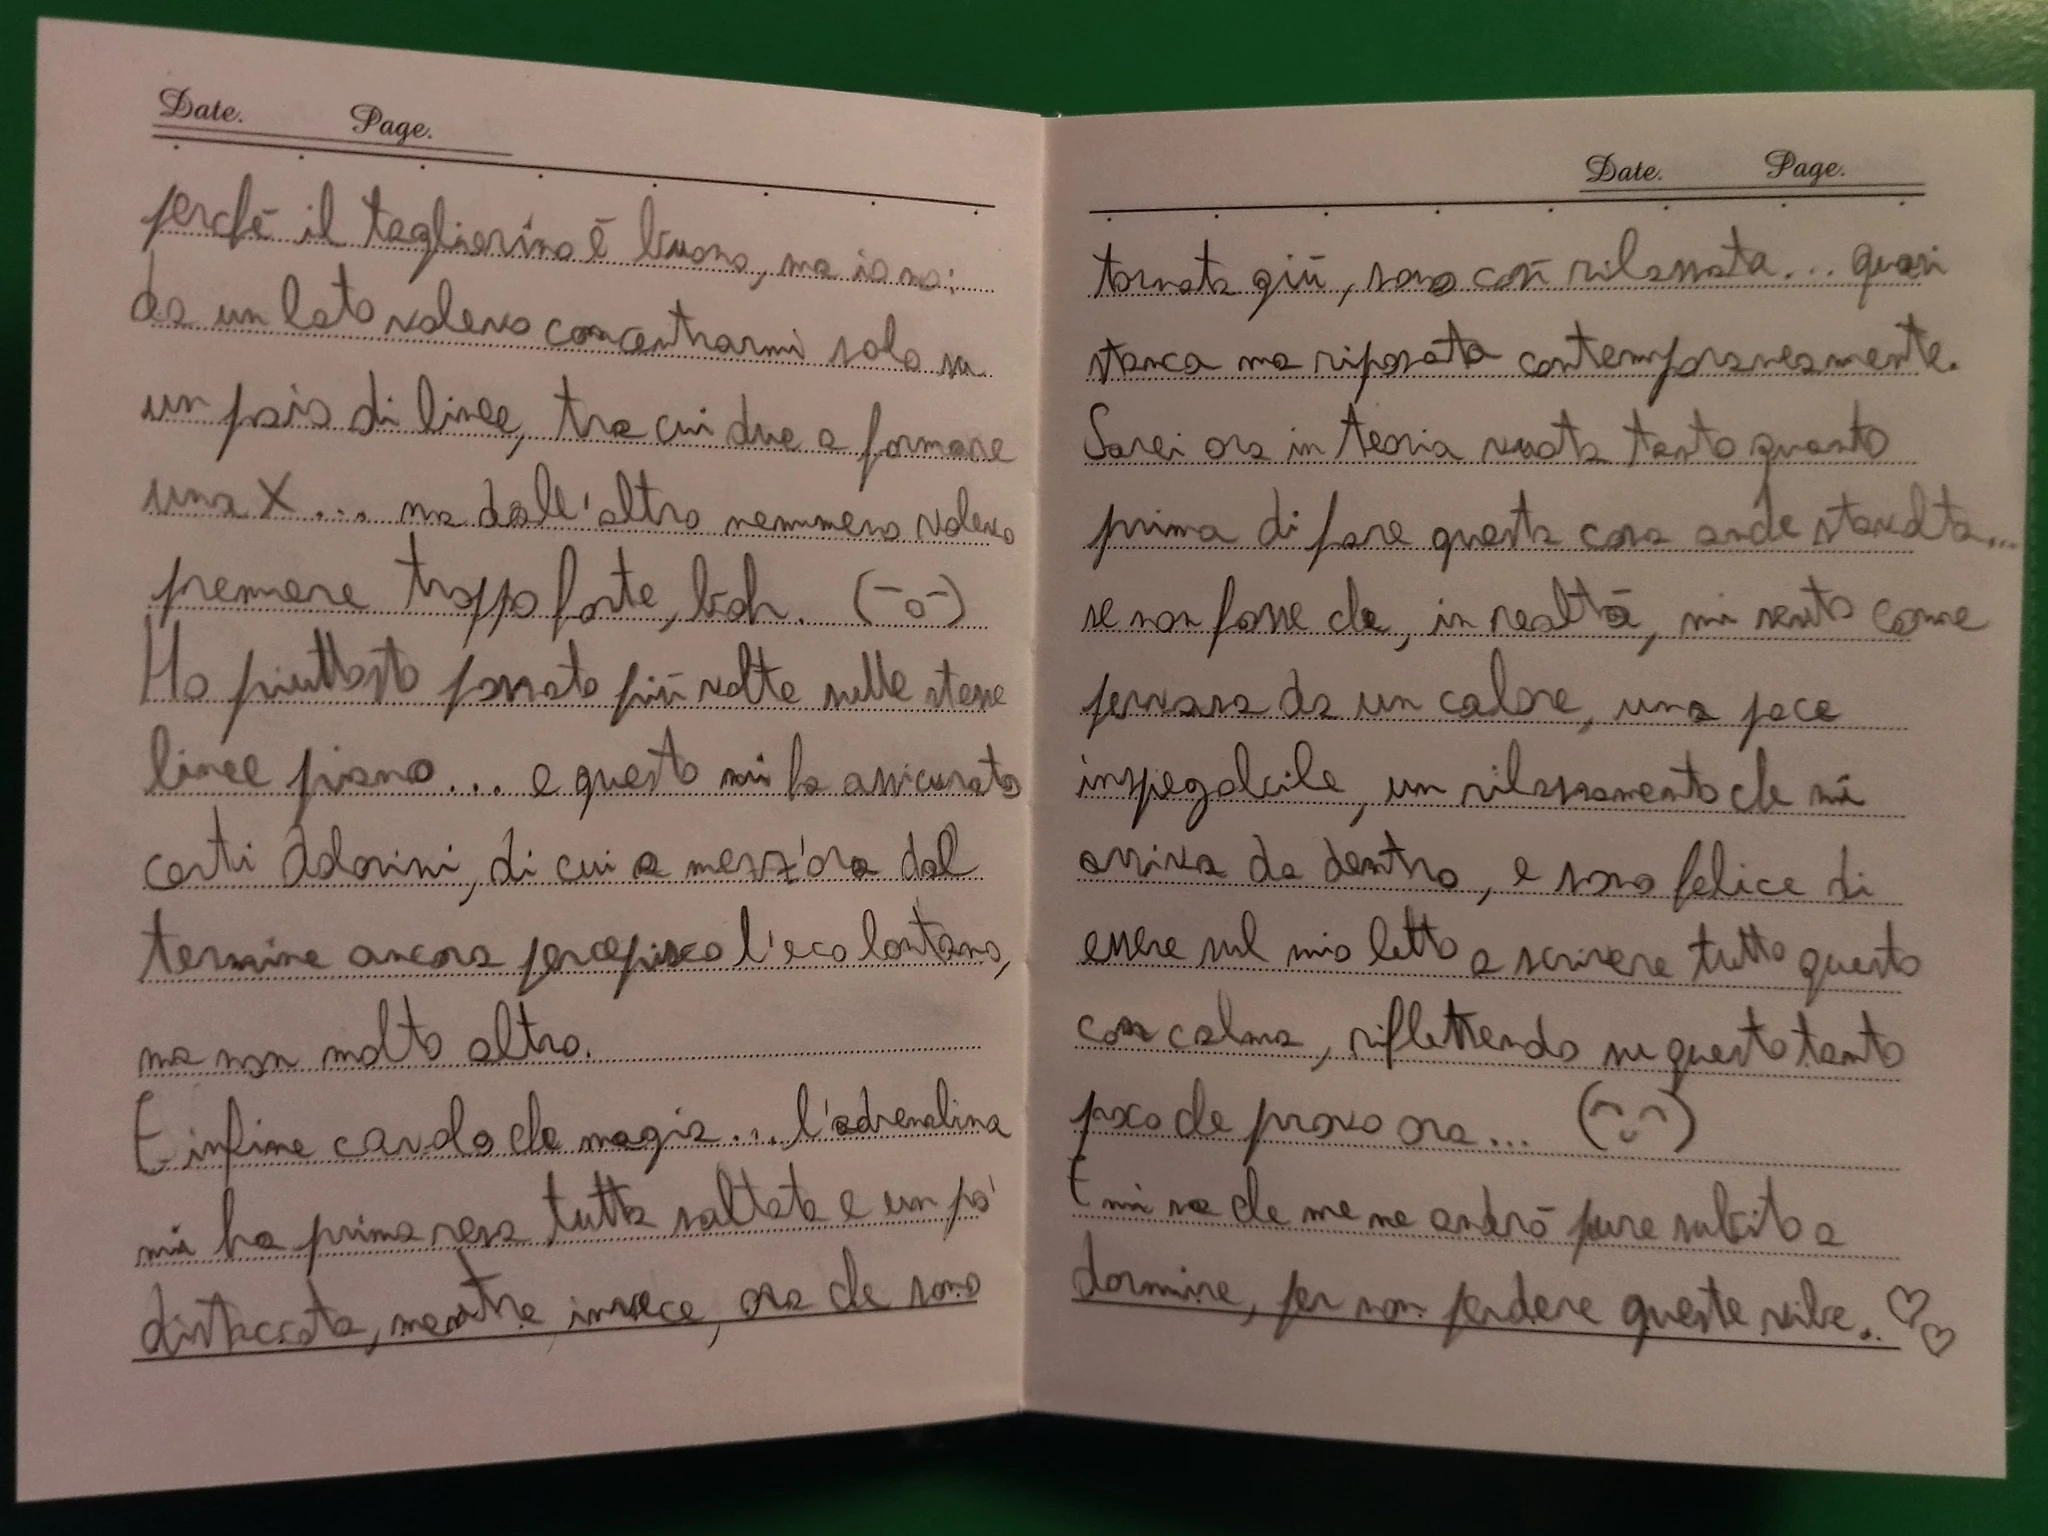 Date. Page.
perché il taglierino è buono, ma io no:
da un lato volevo concentrarmi solo su
un paio di linee, tra cui due a formare
una X... ma dall'altro nemmeno volevo
premere troppo forte, boh. (-o-)
Ho piuttosto passato più volte sulle stesse
linee piano... e questo mi ha assicurato
certi dolorini, di cui a mezz'ora dal
termine ancora percepisco l'eco lontano,
ma non molto altro.
E infine cavolo che magia... l'adrenalina
mi ha prima resa tutta saltata e un po'
distaccata, mentre invece, ora che sono
Date. Page.
tornata giù, sono così rilassata... quasi
stanca ma riposata contemporaneamente.
Sarei ora in teoria vuota tanto quanto
prima di fare questa cosa anche stavolta...
se non fosse che, in realtà, mi sento come
pervasa da un calore, una pace
inspiegabile, un rilassamento che mi
arriva da dentro, e sono felice di
essere sul mio letto a scrivere tutto questo
con calma, riflettendo su questo tanto
poco che provo ora... (^◡^)
E mi sa che me ne andrò pure subito a
dormire, per non perdere queste vibe.. ♡♡